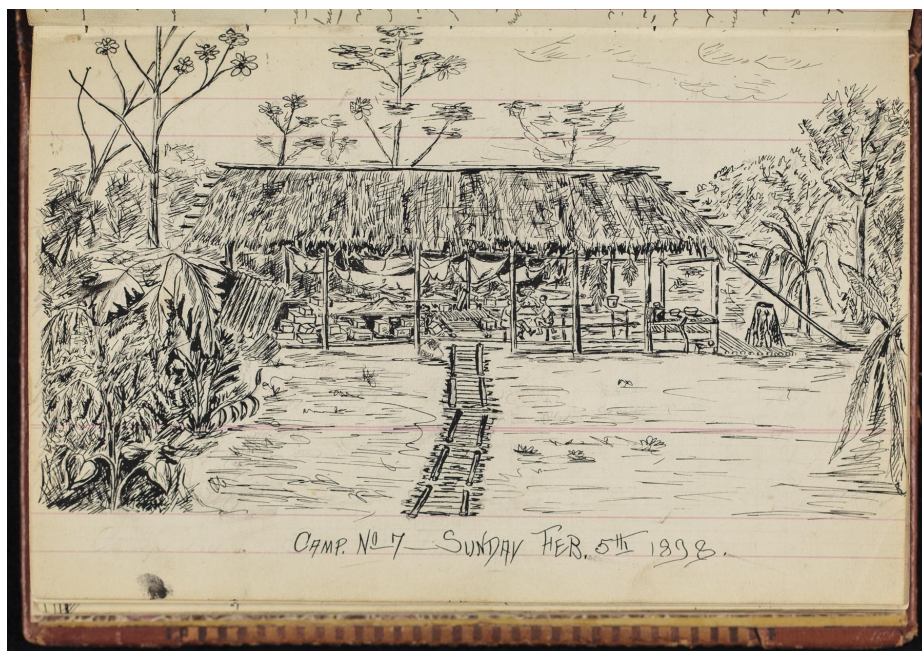 CAMP. Nº 7 — SUNDAY FEB. 5th 1898.